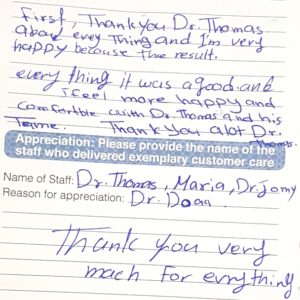 First, Thank you Dr. Thomas
about evey Thing and I'm very
happy because the result.
every thing it was a good. and
I feel more happy and
comfortble with Dr. Thomas and his
Teame. Thank you alot Dr.
Thomas.
Appreciation: Please provide the name of the
staff who delivered exemplary customer care
Name of Staff: Dr. Thomas, Maria, Dr Jomy
Reason for appreciation: Dr. Doaa
Thank you very
mach for evrything